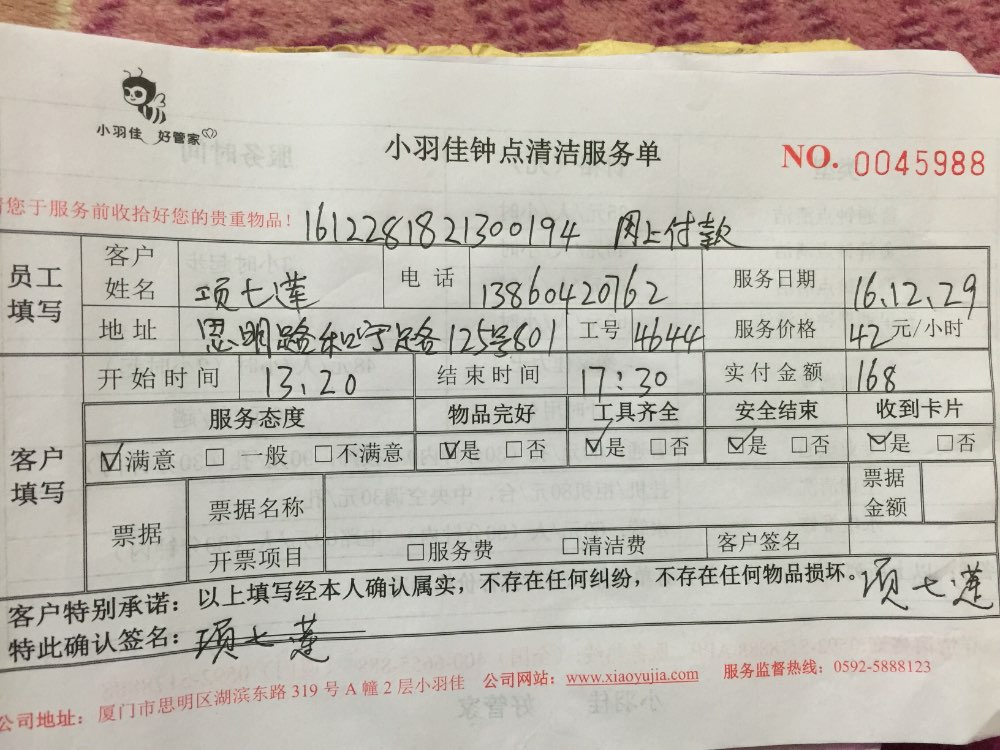 小羽佳 好管家
小羽佳钟点清洁服务单
NO. 0045988
请您于服务前收拾好您的贵重物品！
1612281821300194 网上付款
员工填写
客户姓名 项七莲 电话 13860420762 服务日期 16.12.29
地址 思明路和宁路125号801 工号 4644 服务价格 42元/小时
开始时间 13.20 结束时间 17:30 实付金额 168
客户填写
服务态度 物品完好 工具齐全 安全结束 收到卡片
☑满意 □一般 □不满意 ☑是 □否 ☑是 □否 ☑是 □否 ☑是 □否
票据 票据名称 票据金额
开票项目 □服务费 □清洁费 客户签名
客户特别承诺：以上填写经本人确认属实，不存在任何纠纷，不存在任何物品损坏。项七莲
特此确认签名：项七莲
公司地址：厦门市思明区湖滨东路 319 号 A 幢 2 层小羽佳 公司网站：www.xiaoyujia.com 服务监督热线：0592-5888123